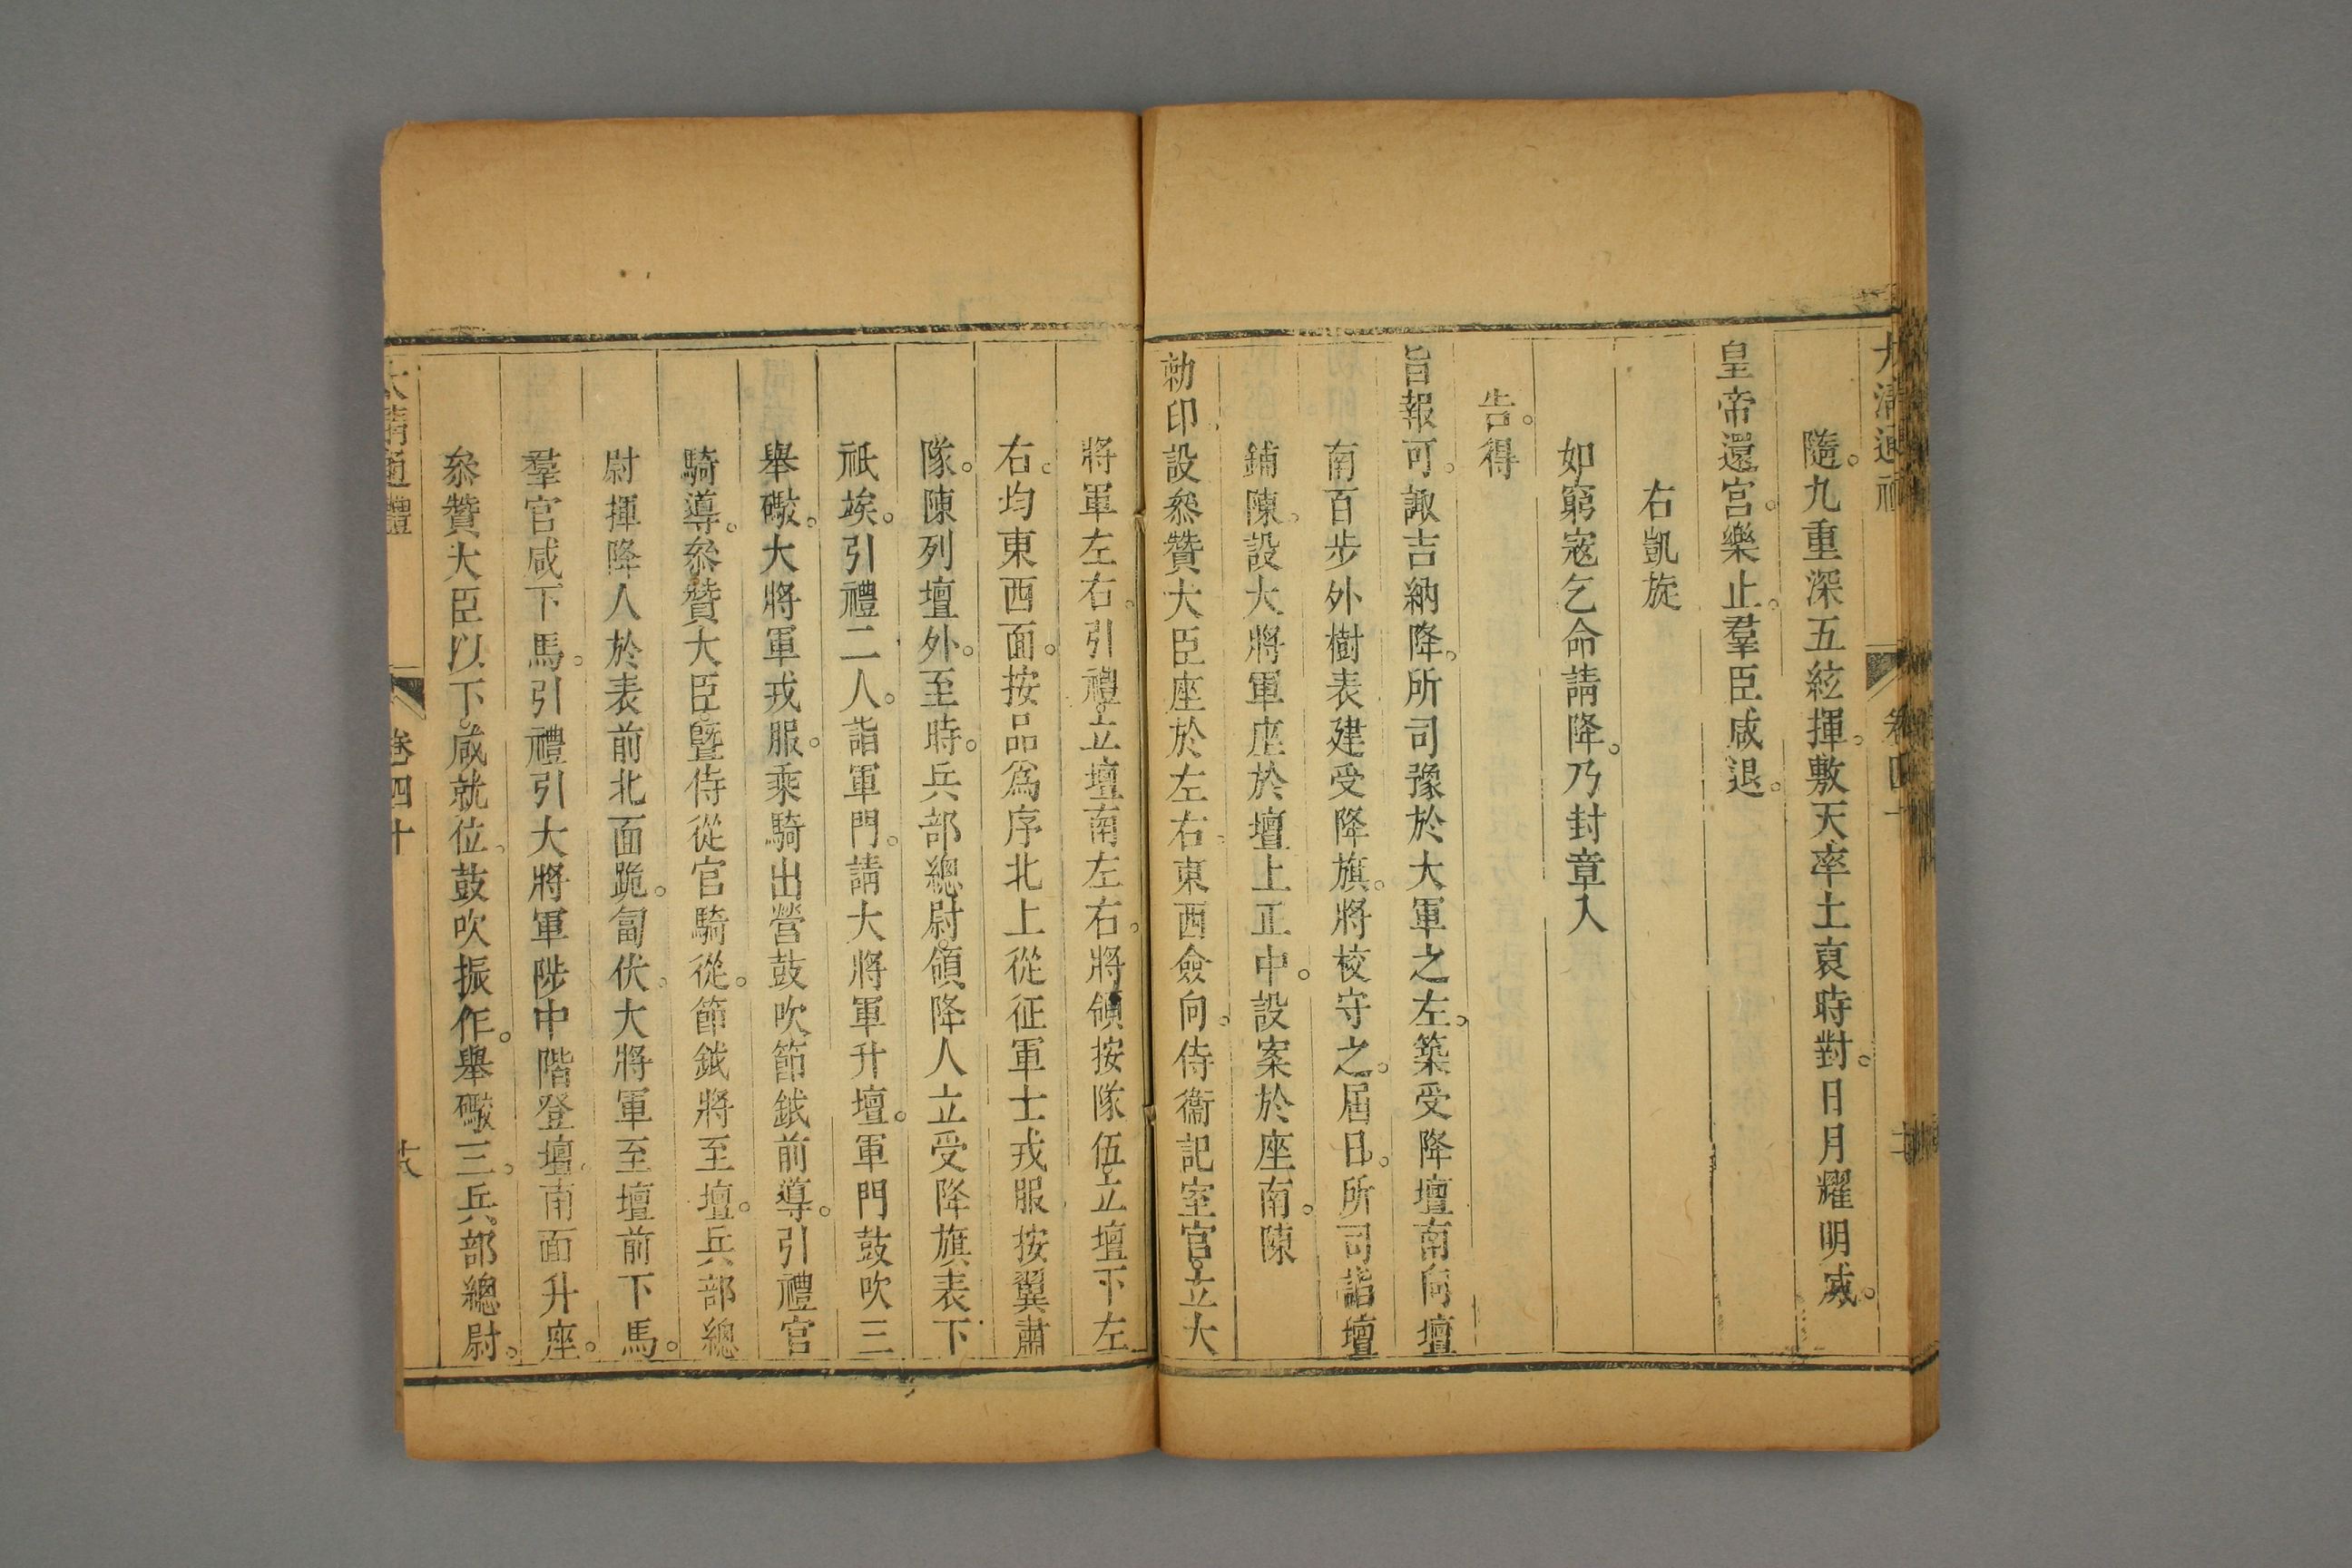 大清通禮 卷四十
隨。九重深五絃揮。敷天率土裒時對。日月耀明威。
皇帝還宮。樂止。羣臣咸退。
右凱旋
如窮寇乞命請降。乃封章入
告。得
旨報可。諏吉納降。所司豫於大軍之左。築受降壇南向壇
南百步外樹表建受降旗。將校守之。屆日。所司詣壇
鋪陳。設大將軍座於壇上正中。設案於座南。陳
勅印設叅贊大臣座於左右。東西僉向。侍衞記室官。立大
將軍左右。引禮。立壇南左右。將領按隊伍。立壇下左
右。均東西面。按品爲序北上從征軍士戎服按翼肅
隊。陳列壇外。至時。兵部總尉。領降人立受降旗表下
祇竢。引禮二人。詣軍門。請大將軍升壇。軍門鼓吹三
舉礮。大將軍戎服。乘騎出營鼓吹節鉞前導。引禮官
騎導。叅贊大臣。曁侍從官騎從。節鉞將至壇。兵部總
尉揮降人於表前北面跪。匐伏。大將軍至壇前下馬。
羣官咸下馬。引禮引大將軍陟中階登壇。南面升座。
叅贊大臣以下。咸就位。鼓吹振作。舉礮三。兵部總尉。
大清通禮 卷四十